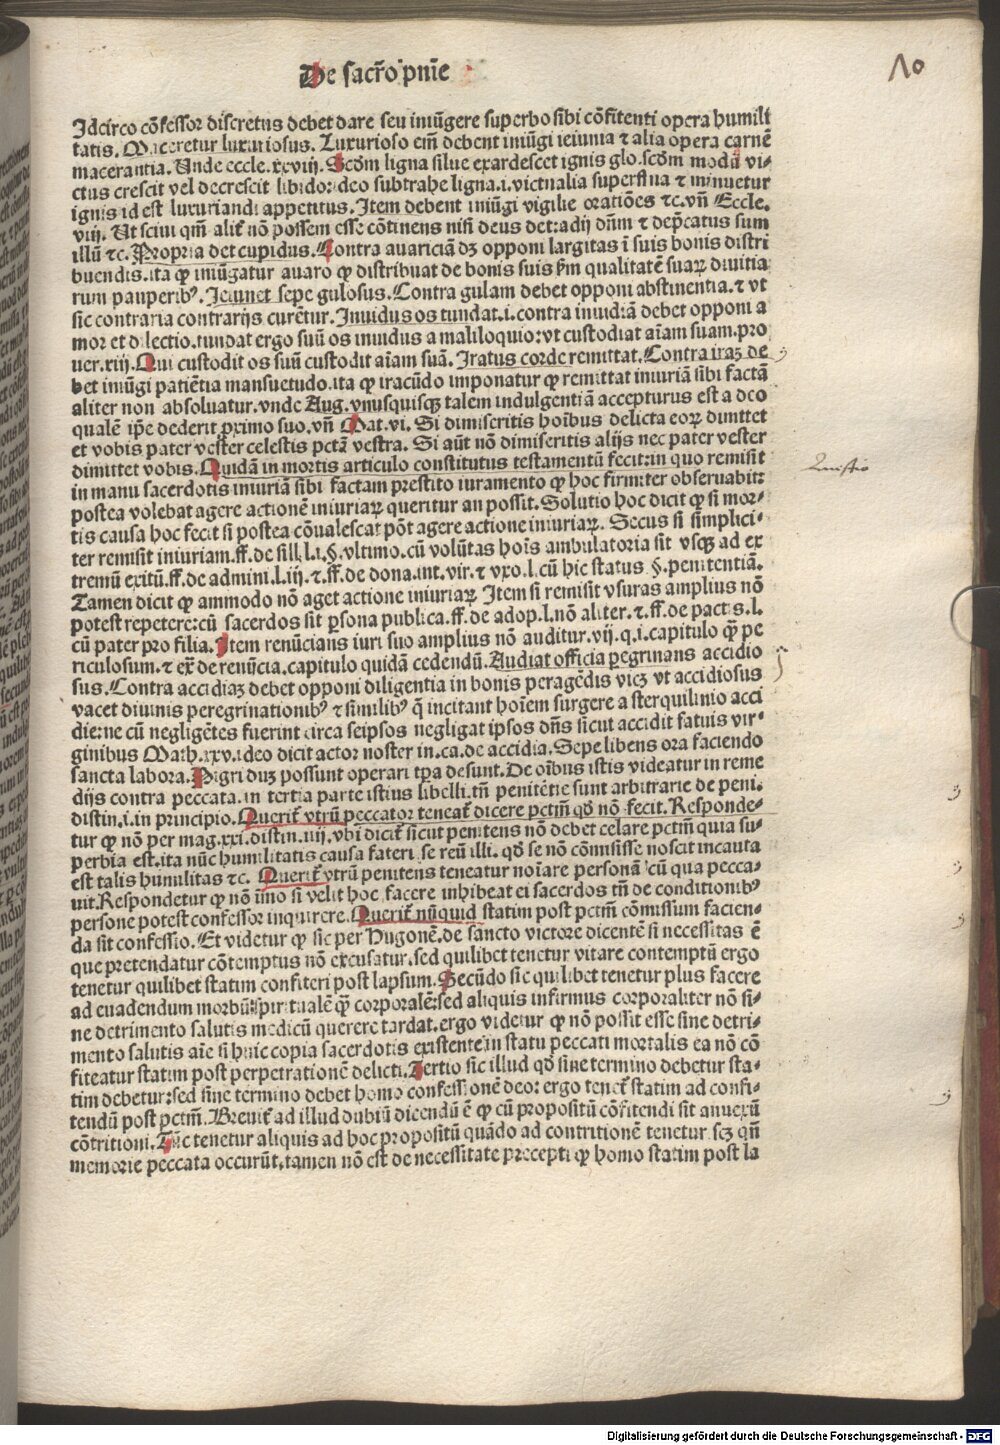 De sacr̄o pn̄ie
10
Idcirco cōfessor discretus debet dare seu iniūgere superbo sibi cōfitenti opera humili
tatis. Maceretur luxuriosus. Luxurioso em̄ debent iniūgi ieiunia ⁊ alia opera carnē
macerantia. Unde eccle. xxviij. Scd̄m ligna silue exardescet ignis glo. scd̄m modū vi⸗
ctus crescit vel decrescit libido: ideo subtrahe ligna .i. victualia superflua ⁊ minuetur
ignis id est luxuriandi appetitus. Item debent iniūgi vigilie oratiōes ⁊c. vn̄ Eccle.
viij. Ut sciui qm̄ alit̄ nō possem esse cōtinens nisi deus det: adij dn̄m ⁊ dep̄catus sum
illū ⁊c. Propria det cupidus. Contra auariciā dꝫ opponi largitas ī suis bonis distri
buendis. ita ꝙ iniūgatur auaro ꝙ distribuat de bonis suis ẜm qualitatē suaꝝ diuitia
rum pauperibꝰ. Ieiunet sepe gulosus. Contra gulam debet opponi abstinentia. ⁊ vt
sic contraria contrarijs curētur. Inuidus os tundat .i. contra inuidiā debet opponi a
mor et dilectio. tundat ergo suū os inuidus a maliloquio: vt custodiat aīam suam. pro
uer. xiij. Qui custodit os suū custodit aīam suā. Iratus corde remittat. Contra iraꝫ de
bet iniūgi patiētia mansuetudo. ita ꝙ iracūdo imponatur ꝙ remittat iniuriā sibi factā
aliter non absoluatur. vnde Aug. vnusquisqꝫ talem indulgentiā accepturus est a deo
qualē ip̄e dederit p̄ximo suo. vn̄ Mat. vi. Si dimiseritis hoībus delicta eoꝝ dimittet
et vobis pater vester celestis pctā vestra. Si aūt nō dimiseritis alijs nec pater vester
dimittet vobis. Quidā in mortis articulo constitutus testamentū fecit: in quo remisit
in manu sacerdotis iniuriā sibi factam prestito iuramento ꝙ hoc firmiter obseruabit:
postea volebat agere actionē iniuriaꝝ queritur an possit. Solutio hoc dicit ꝙ si mor⸗
tis causa hoc fecit si postea cōualescat pōt agere actione iniuriaꝝ. Secus si simplici⸗
ter remisit iniuriam. ff. de sill. l. i. §. vltimo. cū volūtas hoīs ambulatoria sit vsqꝫ ad ex
tremū exitū. ff. de admini. l. iij. ⁊. ff. de dona. int. vir. ⁊ vxo. l. cū hic status §. penitentiā.
Tamen dicit ꝙ ammodo nō aget actione iniuriaꝝ Item si remisit vsuras amplius nō
potest repetere: cū sacerdos sit ꝑsona publica. ff. de adop. l. nō aliter. ⁊. ff. de pactis. l.
cū pater pro filia. Item renūcians iuri suo amplius nō auditur. vij. q. i. capitulo ꝙ̄ pe
riculosum. ⁊ ex̄ de renūcia. capitulo quidā cedendū. Audiat officia pegrinans accidio
sus. Contra accidiaꝫ debet opponi diligentia in bonis peragēdis vicꝫ vt accidiosus
vacet diuinis peregrinationibꝰ ⁊ similibꝰ q̄ incitant hoīem surgere a sterquilinio acci
die: ne cū negligētes fuerint circa seipsos negligat ipsos dn̄s sicut accidit fatuis vir⸗
ginibus Math. xxv. ideo dicit actor noster in. ca. de accidia. Sepe libens ora faciendo
sancta labora. Pigri duꝫ possunt operari tp̄a desunt. De oībus istis videatur in reme
dijs contra peccata. in tertia parte istius libelli. tn̄ penitētie sunt arbitrarie de peni.
distin. i. in principio. Querit̄ vtrū peccator teneat̄ dicere pctm̄ qd̄ nō fecit. Responde⸗
tur ꝙ nō per mag. xxi. distin. iiij. vbi dicit̄ sicut penitens nō debet celare pctm̄ quia su⸗
perbia est. ita nūc humilitatis causa fateri se reū illi. qd̄ se nō cōmisisse noscit incauta
est talis humilitas ⁊c. Querit̄ vtrū penitens teneatur noīare personā cū qua pecca⸗
uit. Respondetur ꝙ nō īmo si velit hoc facere inhibeat ei sacerdos tn̄ de conditionibꝰ
persone potest confessor inquirere. Querit̄ nūquid statim post pctm̄ cōmissum facien⸗
da sit confessio. Et videtur ꝙ sic per Hugonē. de sancto victore dicentē si necessitas ē
que pretendatur cōtemptus nō excusatur. sed quilibet tenetur vitare contemptū ergo
tenetur quilibet statim confiteri post lapsum. Secūdo sic quilibet tenetur plus facere
ad euadendum morbū spiritualē ꝙ̄ corporalē: sed aliquis infirmus corporaliter nō si⸗
ne detrimento salutis medicū querere tardat. ergo videtur ꝙ nō possit esse sine detri⸗
mento salutis aīe si huic copia sacerdotis existente in statu peccati mortalis ea nō cō
fiteatur statim post perpetrationē delicti. Tertio sic illud qd̄ sine termino debetur sta⸗
tim debetur: sed sine termino debet homo confessionē deo: ergo tenet̄ statim ad confi⸗
tendū post pctm̄. Breuit̄ ad illud dubiū dicendū ē ꝙ cū propositū cōfitendi sit annexū
cōtritioni. Tūc tenetur aliquis ad hoc propositū quādo ad contritionē tenetur scꝫ qn̄
memorie peccata occurūt. tamen nō est de necessitate precepti ꝙ homo statim post la
Digitalisierung gefördert durch die Deutsche Forschungsgemeinschaft - DFG